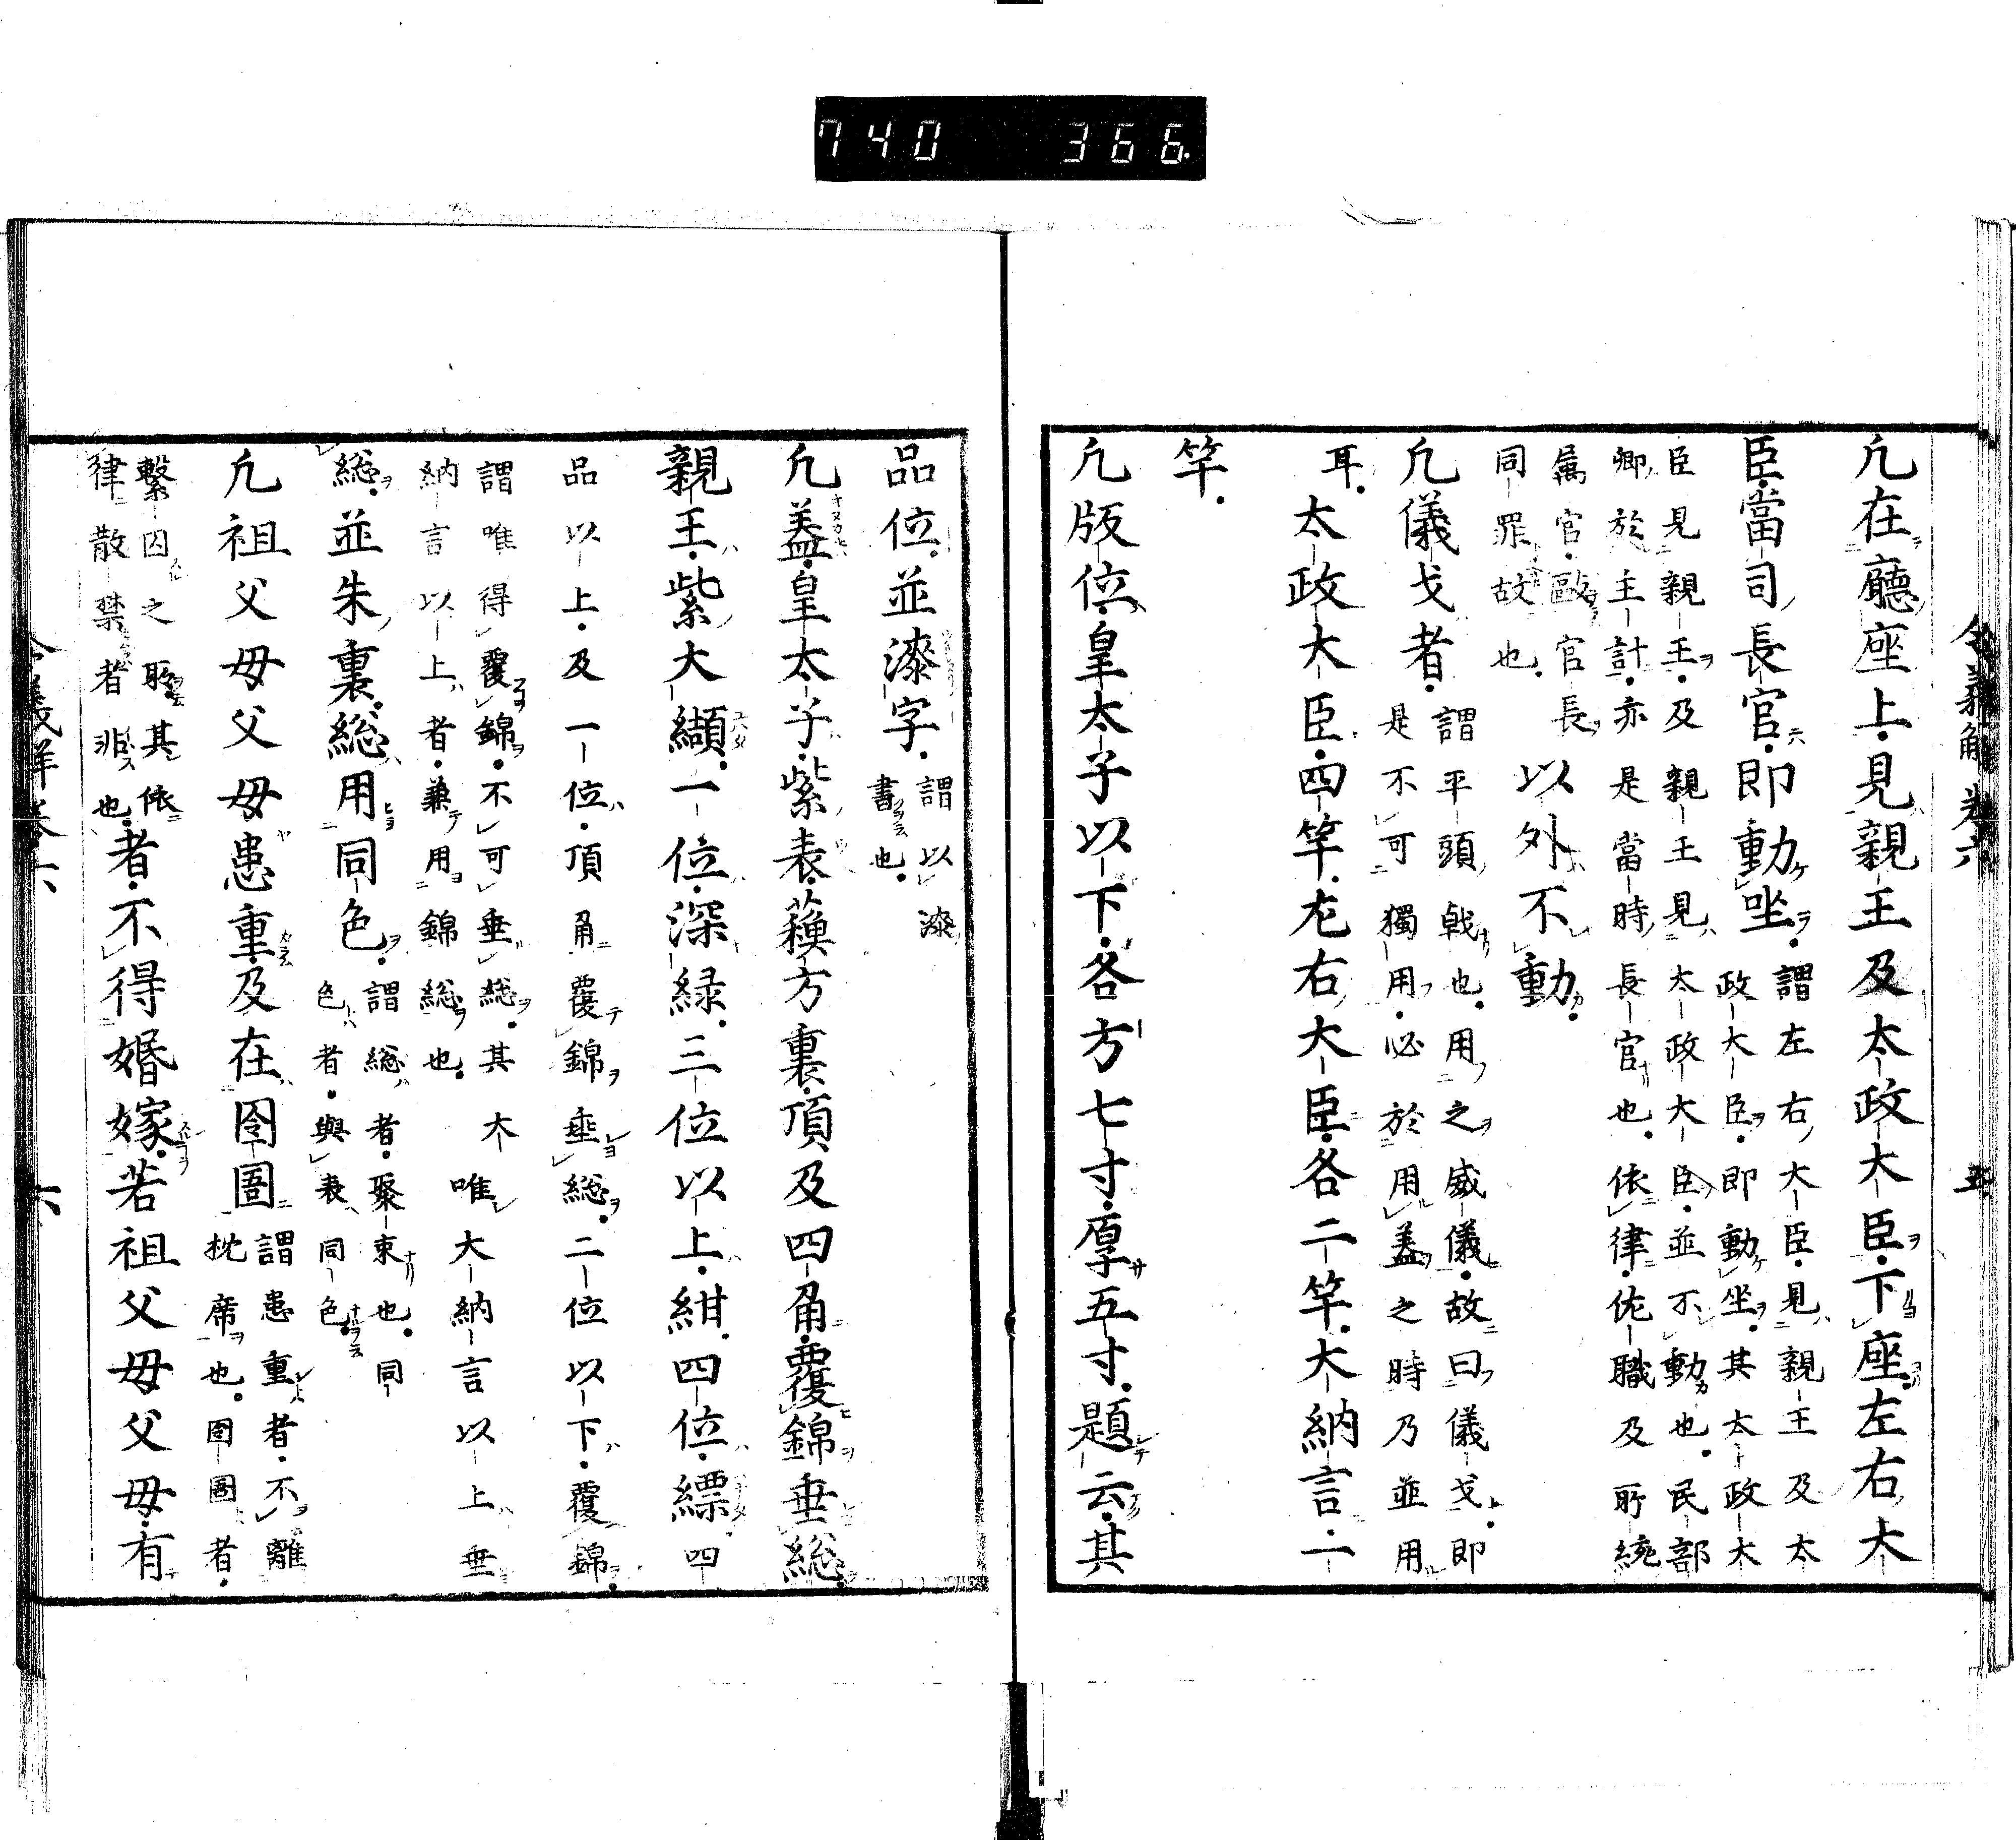 740 366
令義解 卷六 五
凢在廳座上見親王及太政大臣下座左右大
臣當司長官即動坐
謂左右大臣見親王及太
政大臣即動坐其太政大
臣見親王及親王見太政大臣並不動也民部
卿於主計亦是當時長官也依律佐職及所統
属官毆官長
同罪故也
以外不動
凢儀戈者
謂平頭戟也用之威儀故曰儀戈即
是不可獨用必於用蓋之時乃並用
耳
太政大臣四竿左右大臣各二竿大納言二
竿
凢版位皇太子以下各方七寸厚五寸題云其
品位並漆字
謂以漆
書也
凢蓋皇太子紫表蘓方裏頂及四角覆錦垂総
親王紫大纈一位深緑三位以上紺四位縹四
品以上及一位頂角覆錦垂総二位以下覆錦
謂唯得覆錦不可垂総其大
納言以上者兼用錦総也
唯大納言以上垂
総並朱裏総用同色
謂総者聚束也同
色者與表同色
凢祖父母父母患重及在囹圄
謂患重者不離
枕席也囹圄者
繫囚之所其依
律散禁者非也
者不得婚嫁若祖父母父母有
六